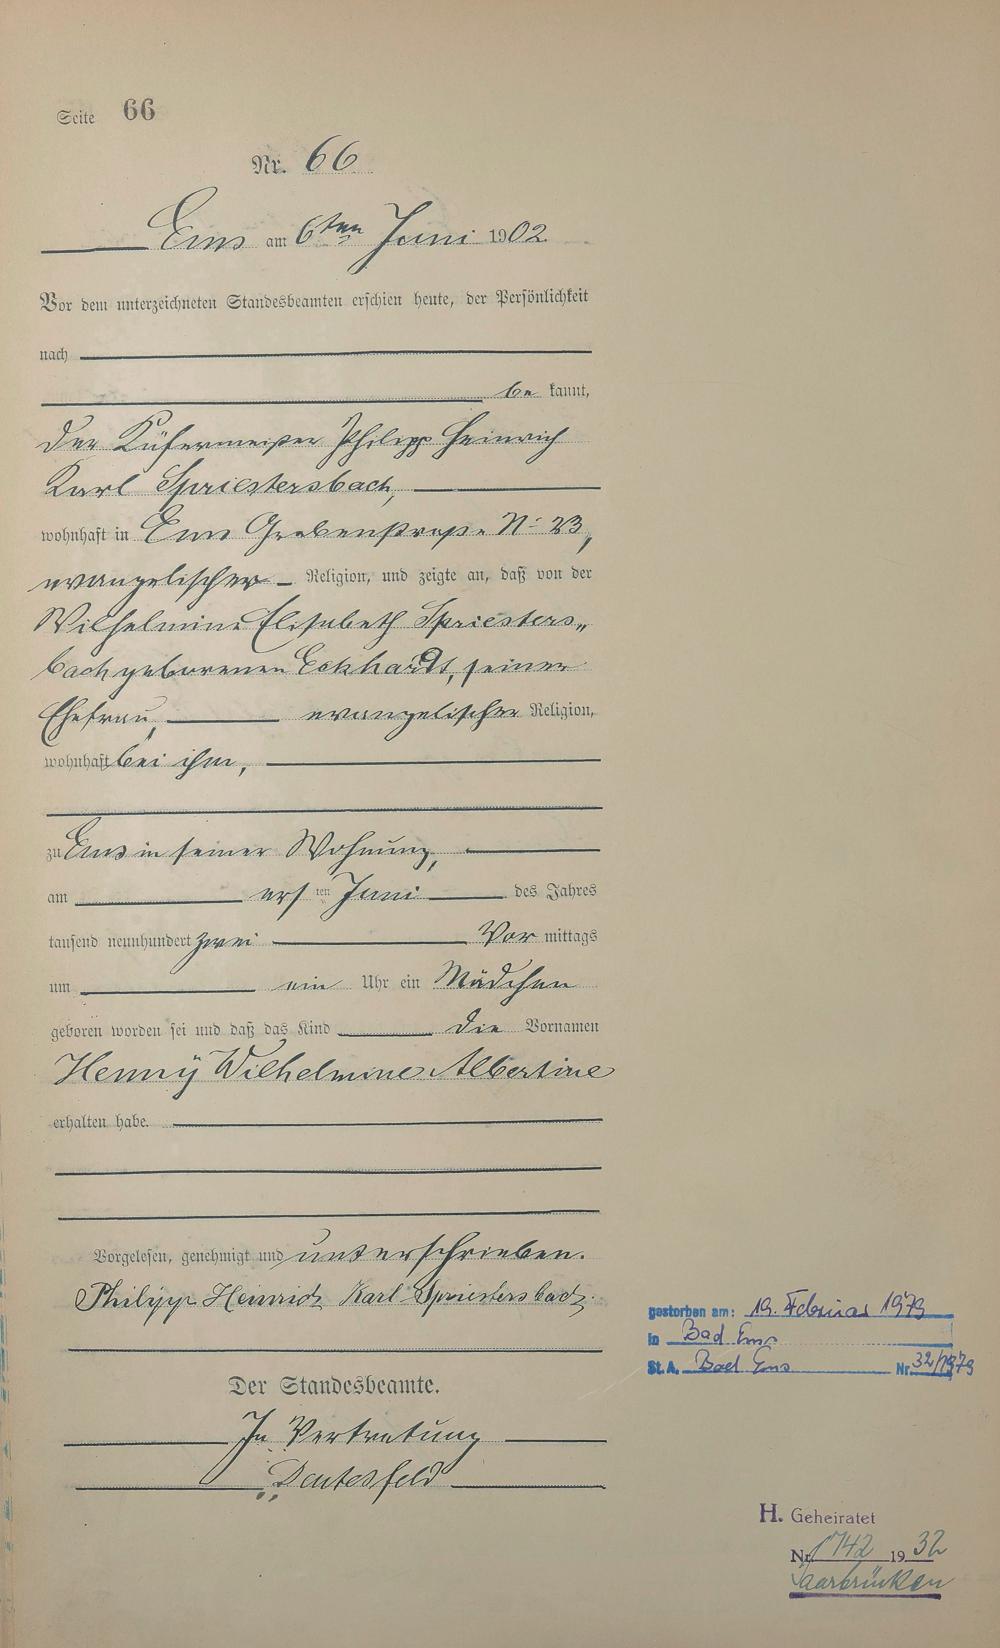 Seite 66
Nr. 66
Ems am 6ten Juni 1902
Vor dem unterzeichneten Standesbeamten erschien heute, der Persönlichkeit
nach
be kannt,
der Küfermeister Philipp Heinrich
Karl Spriestersbach,
wohnhaft in Ems Grabenstraße No 23,
evangelischer Religion, und zeigte an, daß von der
Wilhelmine Elisabeth Spriesters„
bach geborenen Eckhardt, seiner
Ehefrau, evangelischer Religion,
wohnhaft bei ihm,
zu Ems in seiner Wohnung,
am ersten Juni des Jahres
tausend neunhundert zwei Vor mittags
um ein Uhr ein Mädchen
geboren worden sei und daß das Kind die Vornamen
Henny Wilhelmine Albertine
erhalten habe.
Vorgelesen, genehmigt und unterschrieben.
Philipp Heinrich Karl Spriestersbach.
Der Standesbeamte.
In Vertretung
gestorben am: 19. Februar 1979
in Bad Ems
St.A. Bad Ems Nr. 32/1979
H. Geheiratet
Nr. 1742 1932
Saarbrücken